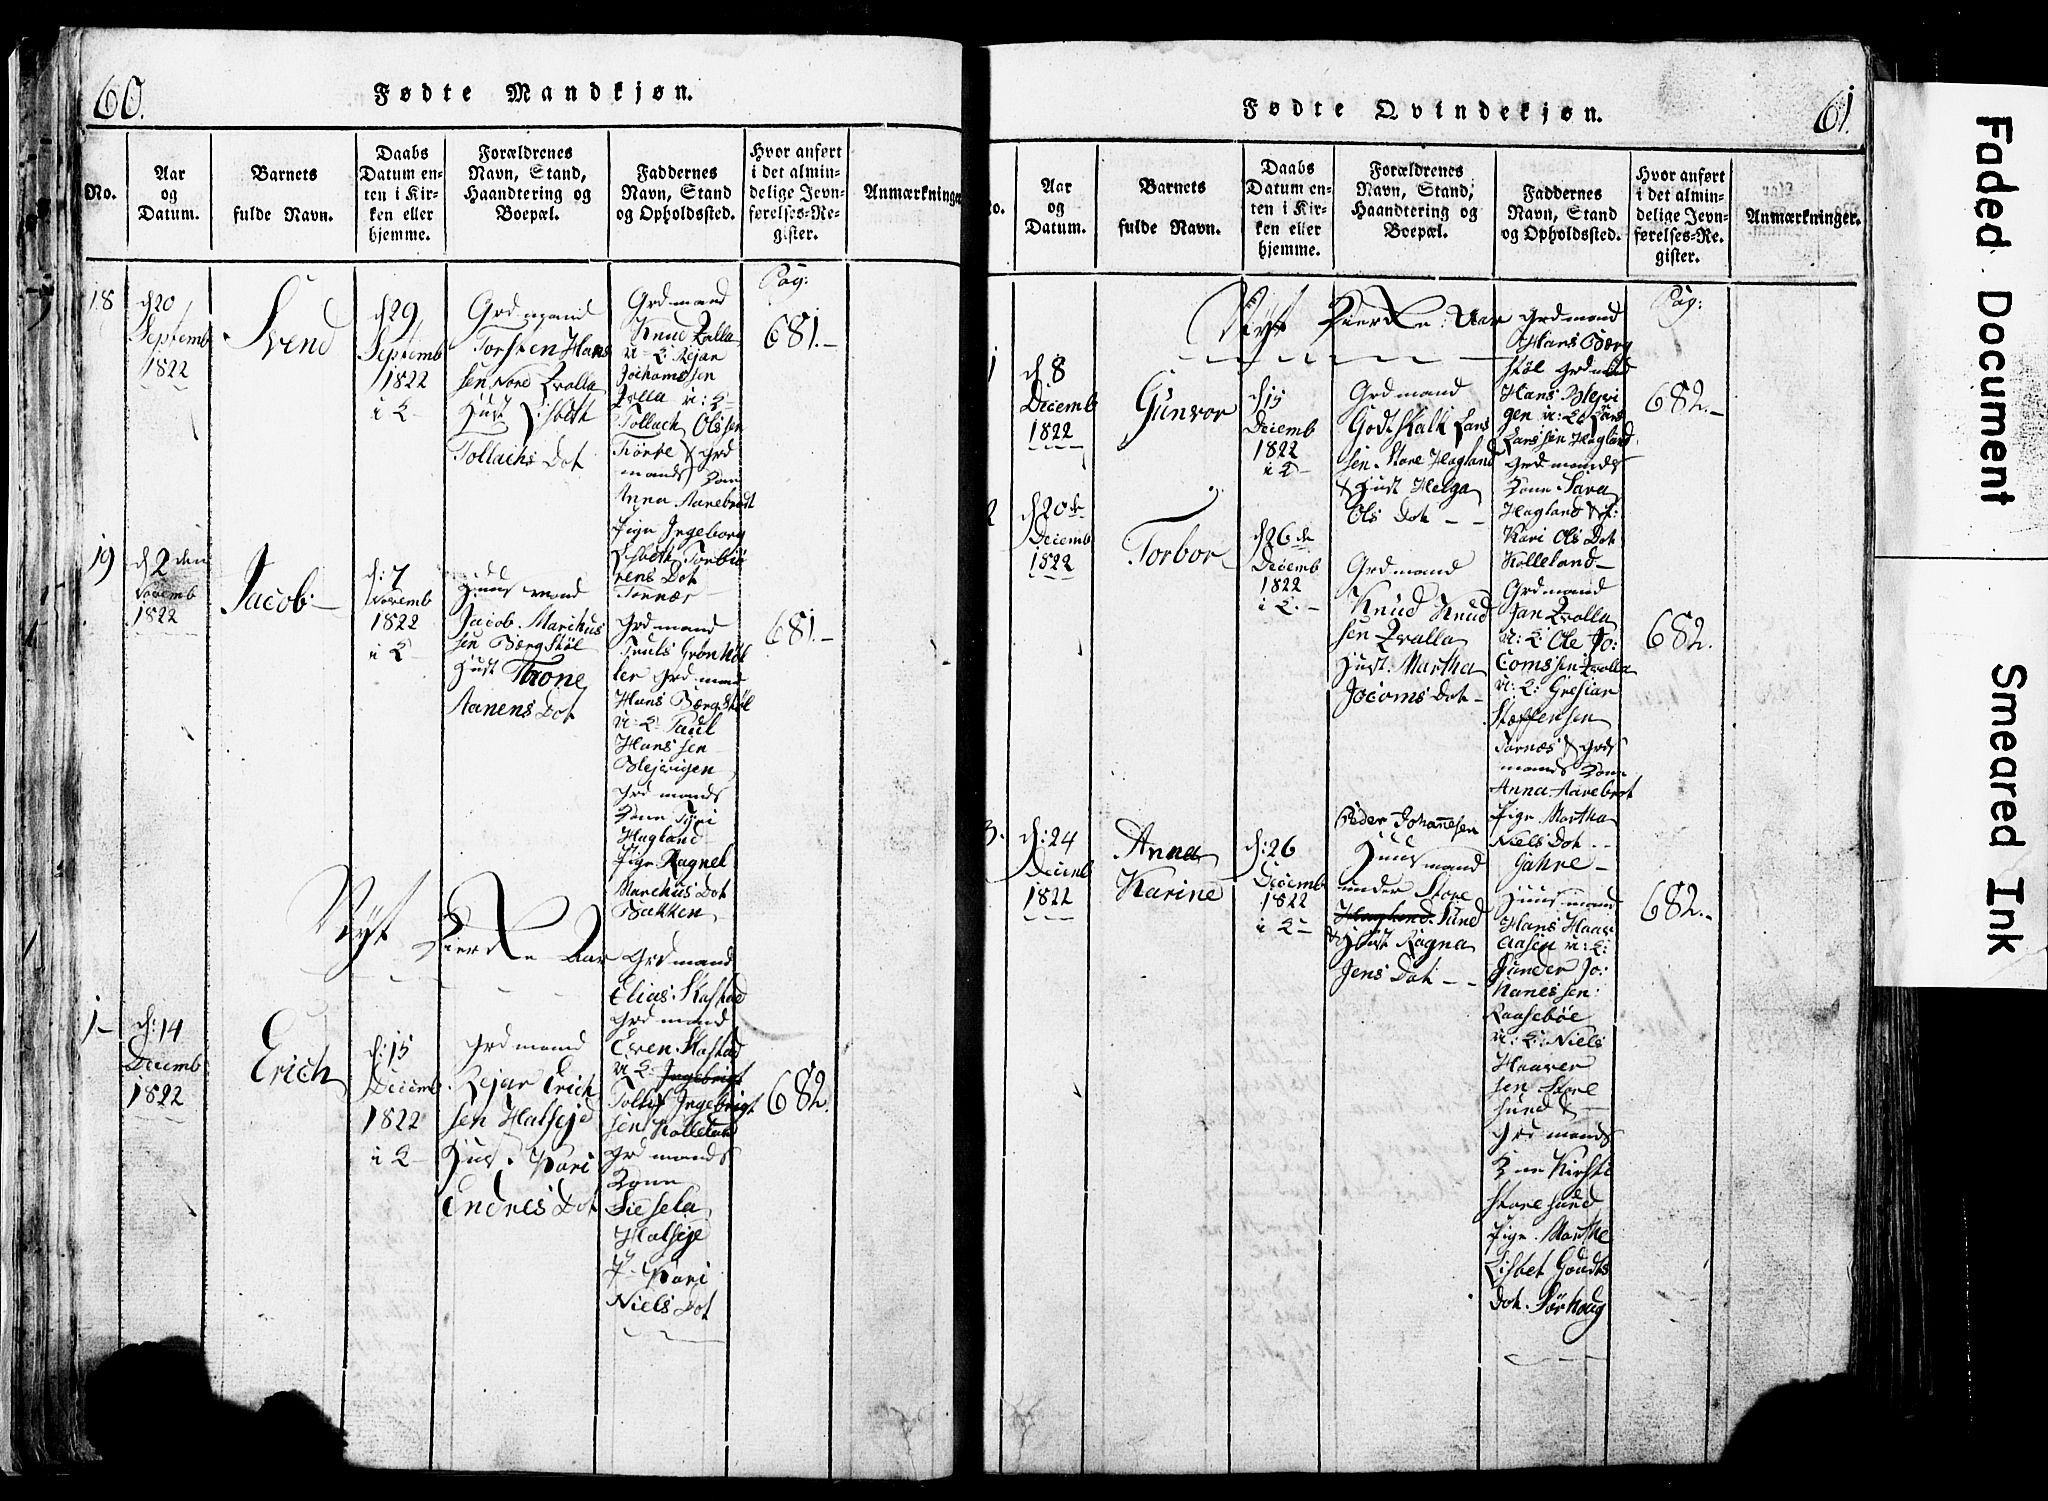 60.
Fødte Mandkjøn.
No.
Aar
og
Datum.
Barnets
fulde Navn.
Daabs
Datum en-
ten i Kir-
ken eller
hjemme.
Forældrenes
Navn, Stand,
Haandtering og
Boepæl.
Faddernes
Navn, Stand
og Opholdssted.
Hvor anført
i det almin-
delige Jevn-
førelses-Re-
gister.
Anmærkninger
18
d 20
Septemb
1822
Svend
d 29
Septemb
1822
i K
Grdmand
Torsten Hans
sen Nore Qvalla
Hust Lisbeth
Tollachs Dot
Grdmand
Knud Qvalla
u: K: Rejar
Jochomssen
Qvalla u: K
Tollach Olssen
& Grd
mands Kone
Anna Aarebrodt
Pige Ingeborg
Lisbeth Torbiö
rens Dot
Tornæs
Pag:
681.-
19
d 2 den
Novemb
1822
Jacob
d: 7
Novemb
1822
i K
Huusmand
Jacob Marchus
sen Bærgstöl
Hust Throne
Aanens Dot
Grdmand
Truls Grönhöl
ler Grdmand
Hans Bærgstöl
u: K: Paul
Hanssen
Blejvigen
Grdmands
Kone Tyri
Hagland
Pige Ragnel
Marchus Dot
Bakken
681.-
Nyt Kierke Aar
1-
d: 14
Decemb
1822
Erich
d: 15
Decemb
1822
i K
Grdmand
Rejar Erich
sen Halseje
Hus. Kari
Endres Dot
Grdmand
Elias Skastad
Grdmand
Even Skastad
u: K: Ingebrigt
Tollif Ingebrigt
sen Kolleland
Grdmands
Kone
Siesela
Halseje
P Kari
Niels Dot
682.
61.
Fødte Qvindekjøn.
No.
Aar
og
Datum.
Barnets
fulde Navn.
Daabs
Datum en-
ten i Kir-
ken eller
hjemme.
Forældrenes
Navn, Stand,
Haandtering og
Boepæl.
Faddernes
Navn, Stand
og Opholdssted.
Hvor anført
i det almin-
delige Jevn-
førelses-Re-
gister.
Anmærkninger.
Nyt Kierke Aar
1
d 8
Decemb
1822
Gunvor
d 15
Decemb
1822
i K
Grdmand
Godtskalk Lars
sen Store Hagland
& Hust Helga
Ols Dot
Grdmand
Hans Bærg
stöl Grdmand
Hans Blejvi
gen u: K: Lars
Larssen Hagland
Grdmands
Kone Sara
Hagland & P:
Kari Ols Dot
Kolleland
Pag:
682.-
2
d 20de
Decemb
1822
Torbor
d 26 de
Decemb
1822
i K.
Grdmand
Knud Knud
sen Qvalla
Hust. Martha
Jocoms Dot
Grdmand
Jan Qvalla
u: K: Ole Jo:
comssen Qvalla
u: K: Gresiar
Stæffensen
Tornæs & Grd
mands Kone
Anna Aarebrot
Pige Martha
Niels Dot
Gahre
682.
3.
d: 24
Decemb
1822
Anna
Karine
d: 26
Decemb
1822
i K
Peder Johannesen
Huusmand
under Store
Hagland Sund
& Hust Ragna
Jens Dot
Huusmand
Hans Haar
Aasen u: K:
Gunder Jo:
hanessen:
Raasebøe
u: K: Niels
Haaver
sen Store
Sund &
Grdmands
Kone Kirsti
Store Sund
Pige Marthe
Lisbet Goudts
Dot. Sørhaug
682.-
Faded Document
Smeared Ink